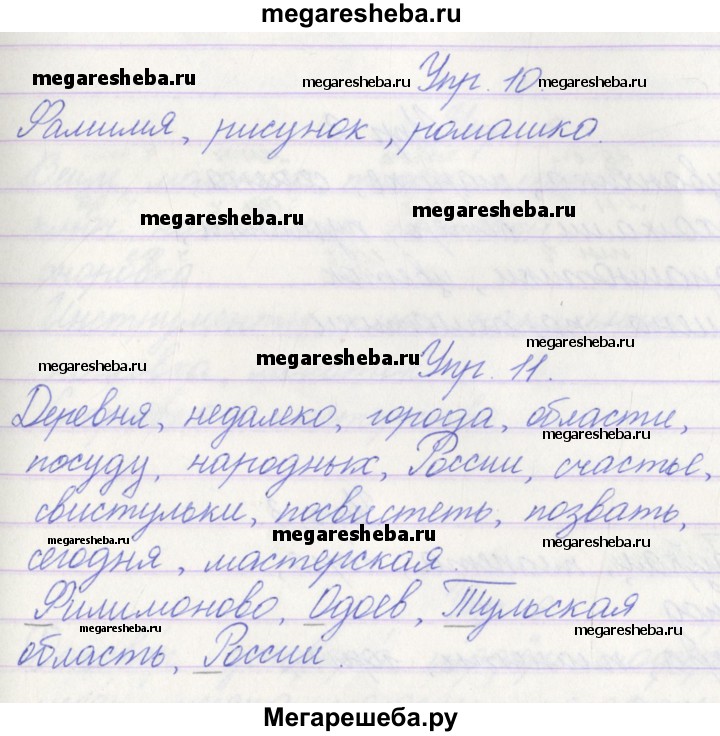 megaresheba.ru
megaresheba.ru megaresheba.ru Упр. 10. megaresheba.ru
Фамилия, рисунок, ромашка.
megaresheba.ru megaresheba.ru
megaresheba.ru
megaresheba.ru megaresheba.ru Упр. 11.
Деревня, недалеко, города, области,
megaresheba.ru
посуду, народных, России, счастье,
свистульки, посвистеть, позвать,
megaresheba.ru megaresheba.ru megaresheba.ru
сегодня, мастерская.
Филимоново, Одоев, Тульская
megaresheba.ru megaresheba.ru
область, России.
Мегарешеба.ру